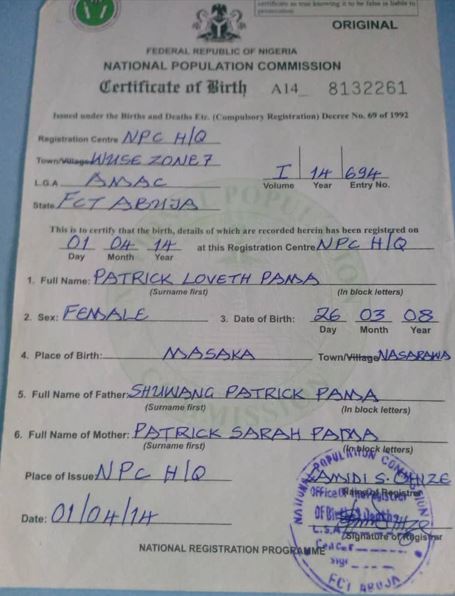 certificate as true knowing it to be false is liable to
prosecution.
ORIGINAL
FEDERAL REPUBLIC OF NIGERIA
NATIONAL POPULATION COMMISSION
Certificate of Birth A14_ 8132261
Issued under the Births and Deaths Etc. (Compulsory Registration) Decree No. 69 of 1992
Registration Centre NPC H/Q
Town/Village WUSE ZONE 7
I 14 694
Volume Year Entry No.
L.G.A AMAC
State FCT ABUJA
This is to certify that the birth, details of which are recorded herein has been registered on
01 04 14 at this Registration Centre NPC H/Q
Day Month Year
1. Full Name: PATRICK LOVETH PAMA
(Surname first) (In block letters)
2. Sex: FEMALE 3. Date of Birth: 26 03 08
Day Month Year
4. Place of Birth: MASAKA Town/Village NASARAWA
5. Full Name of Father: SHUWANG PATRICK PAMA
(Surname first) (In block letters)
6. Full Name of Mother: PATRICK SARAH PAMA
(Surname first) (In block letters)
Place of Issue NPC H/Q
Name of Registrar
Date: 01/04/14
Signature of Registrar
NATIONAL REGISTRATION PROGRAMME
NATIONAL POPULATION COMMISSION
Office of the Registrar
Of Births
FCT ABUJA